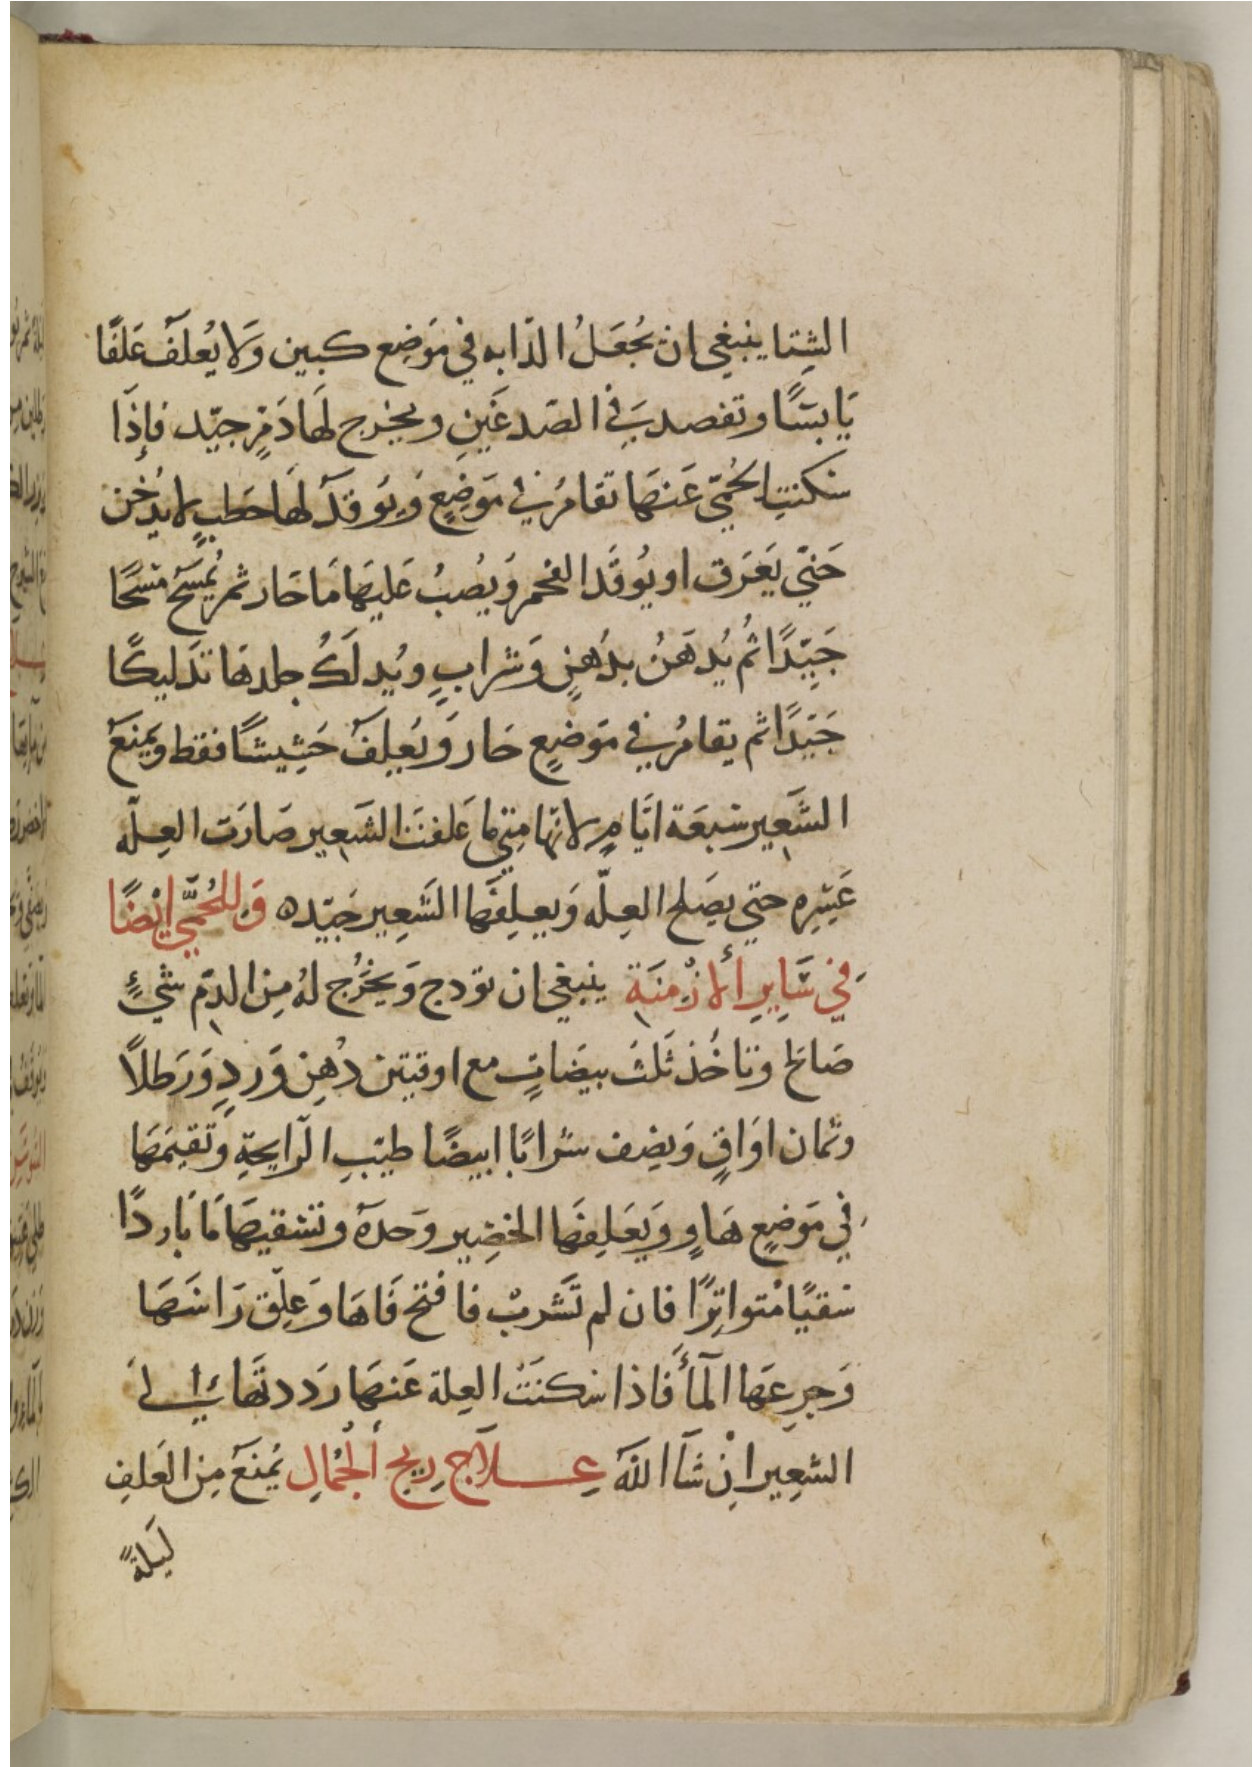 الشِتا ينبغي ان تُجعَلُ الدّابه في مَوَضِع كبين وَلا يُعلَفَ عَلفًا
يَابسًا وتفصد في الصَدغَينِ ويخرج لهَا دَمٍ جيّد فإِذَا
سَكنتِ الحُمّي عَنهَا تقامُ في مَوَضِعٍ وَيُوقدَ لهَا حَطبٍ لا يُدخن
حَتّي يَعَرَق او يُوقَد الفحم وَيُصبُ عَليهَا مَا حَار ثم يُمسَح مَسحًا
جَيِّدًا ثُم يُدهَنُ بدُهنٍ وَشرابٍ ويُدلَكُ جلدهَا تَدليكًا
جَيّدًا ثم يقامُ في مَوَضِعٍ حَار وَيعَلِفَ حَشِيشًا فقط ويَمنَعَ
الشَعِير سَبعَة ايَامٍ لانّها متي ما عَلفتَ الشَعِير صَارَت العِلّه
عَسِرِه حتي يصَلح العِلّه وَيعلِفَهَا الشَعِير جَيّده وَللحُمّي ايْضًا
في سَايِرِ ألازْمنَة ينبغي ان تودج وَيخَرُج لهُ مِن الدّم شيءٍ
صَالح وتاخُذ ثَلثَ بيضَاتٍ مع اوقيتين دُهنِ وَردٍ وَرَطلاً
وثمان اوَاقٍ وَنِصف شرابًا ابيضًا طيّبِ الرّايحةِ وَتقيمَهَا
في مَوَضِعٍ هَاوٍ وَيَعَلِفَهَا الخضِير وَحدَهَ وتسْقيهَا مَا بَاردًا
سَقيًا مُتواتِرًا فان لم تَشربْ فافتح فَاهَا وَعَلِّق رَاسَهَا
وَجرِعَهَا المَأَ فَاذا سَكنَتْ العِلة عَنهَا رَددتَهَا الي
الشعِير انِْ شَآ اللهَ عِلآجِ رِيح ألْجُمَالِ يُمنَعَ مِن العَلفِ
لَيلةً